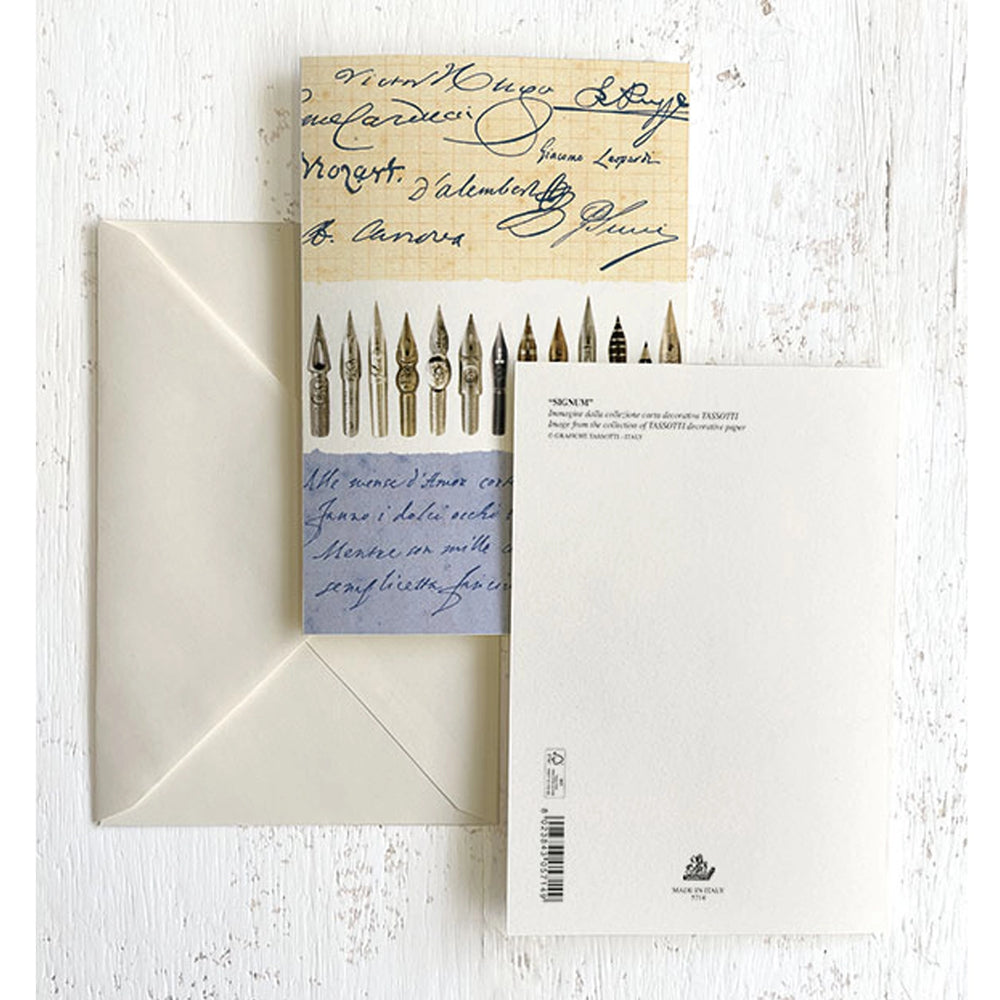 Victor Hugo
Carducci
Giacomo Leopardi
Mozart.
D'alembert
A. Canova
Alle mense d'Amor
Fanno i dolci occhi
Mentre con mille
semplicetta
"SIGNUM"
Immagine dalla collezione carta decorativa TASSOTTI
Image from the collection of TASSOTTI decorative paper
© GRAFICHE TASSOTTI - ITALY
8 023843 057149
MADE IN ITALY
5714